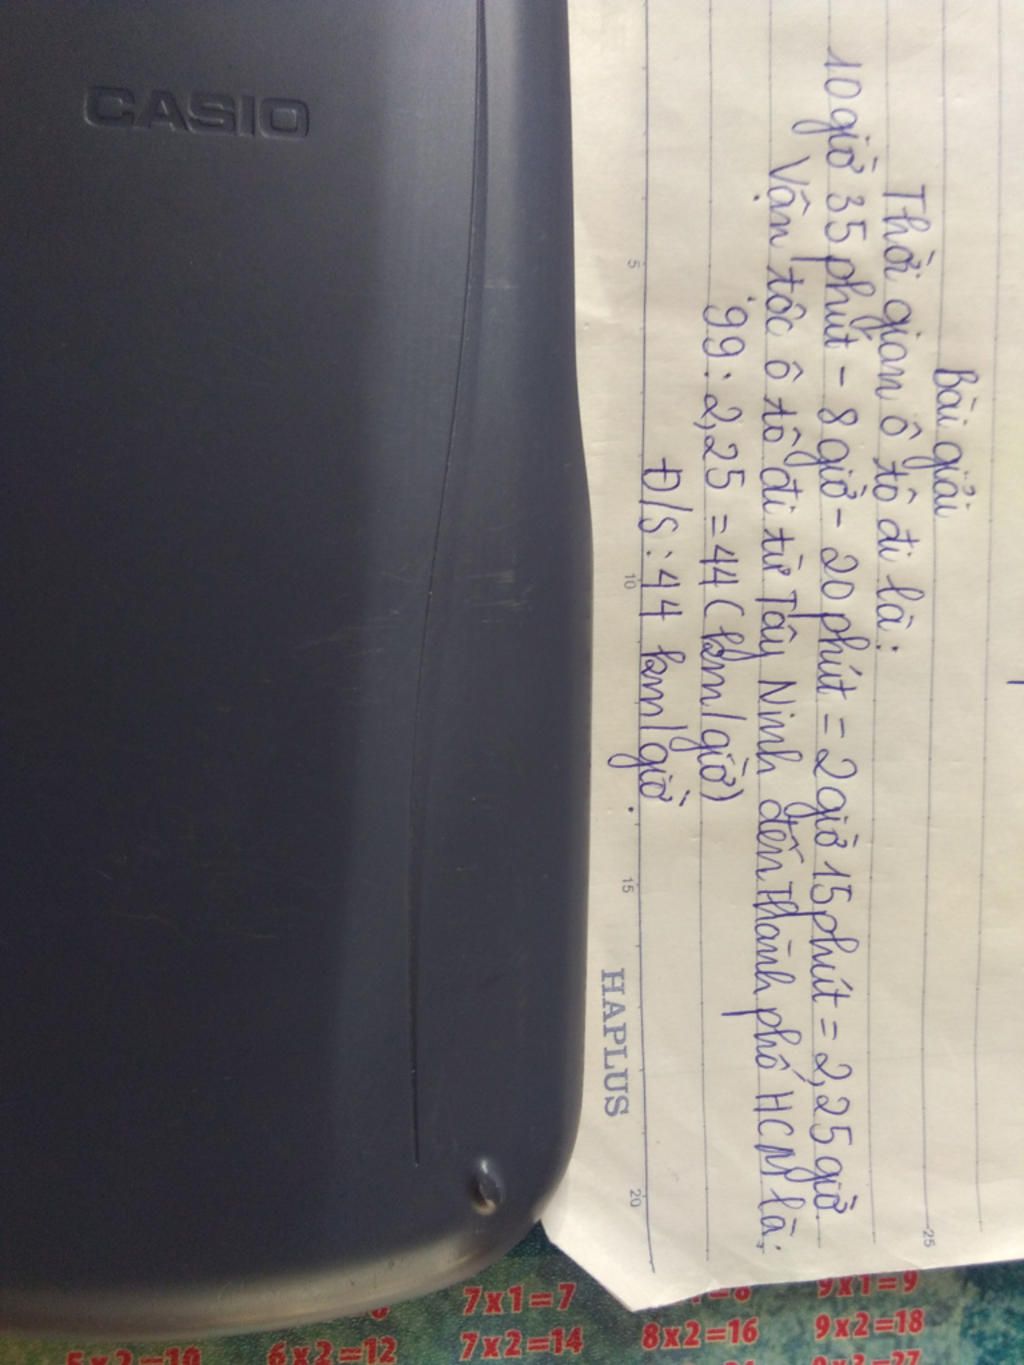 CASIO
Bài giải
Thời gian ô tô đi là:
10 giờ 35 phút - 8 giờ - 20 phút = 2 giờ 15 phút = 2,25 giờ.
Vận tốc ô tô đi từ Tây Ninh đến Thành phố HCM là:
99 : 2,25 = 44 (km/giờ)
Đ/S : 44 km/giờ.
5
10
15
20
25
HAPLUS
7x1=7
9x1=9
5x2=10
6x2=12
7x2=14
8x2=16
9x2=18